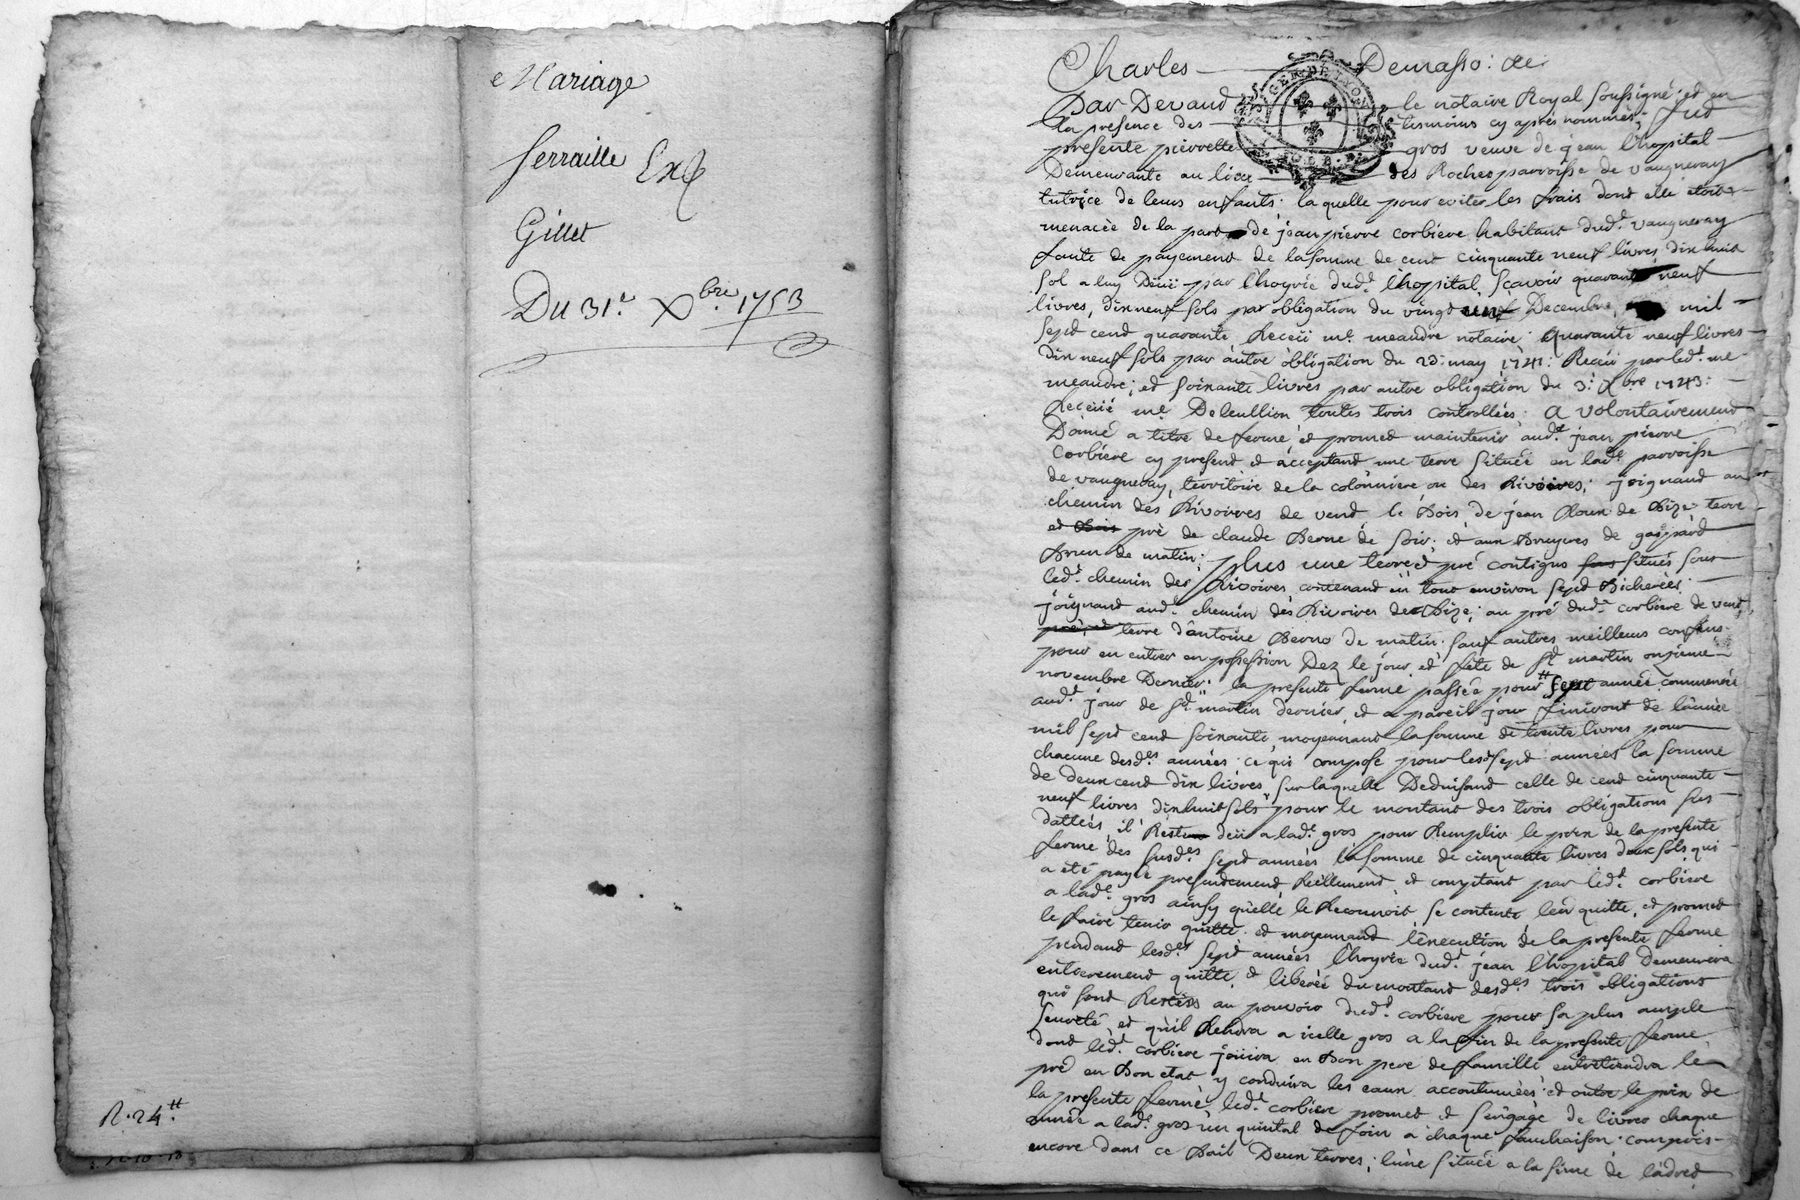 Mariage
ferraille Exp
Gillet
Du 31.e Xbre. 1753
R. 24tt
Charles Demasso: &c:
Par Devand le notaire Royal soussigné: et en
la presence des tesmoins cy après nommés; fut
presente pierrette gros veuve de jean lhopital
Demeurante au lieu des Roches parroisse de vaugneray
tutrice de leurs enfants: laquelle pour eviter les frais dont elle etoit
menacée de la part de jean pierre corbiere habitant dud.t vaugneray
faute de payement de la somme de cent cinquante neuf livres, dix huit
sol a luy deüe par l'hoyrie dud.t lhopital, scavoir quarante neuf
livres, dix neuf sols par obligation du vingt Decembre, mil
sept cent quarante, Receüe m.e meandre notaire; quarante neuf livres
dix neuf sols par autre obligation du 23: may 1741: Receüe par led.t me
meandre; et soixante livres par autre obligation du 3: Xbre 1743:
Receüe me Deleullion toutes trois controllées: a volontairement
Donné a titre de ferme et promet maintenir aud.t jean pierre
corbiere cy present et acceptant une terre située en lad.e parroisse
de vaugneray, territoire de la colonniere ou des Rivoires; joignant au
chemin des Rivoires de vent le Bois de jean Roux de Bize terre
et pré de claude Berne de soir; et aux Bruyeres de gaspard
Brun de matin; plus une terre et pré contigus situés sous
led.t chemin des Rivoires contenant en tout environ sept Bicherées
joignant aud.t chemin des Rivoires de Bize; au pré dud.t corbiere de vent
terre d'antoine Berno de matin: sauf autres meilleurs confins
pour en entrer en possession Dez le jour et fête de St martin onzieme
novembre Dernier: la presente ferme passée pour sept année commencé
aud.t jour de St martin dernier, et a pareil jour finiront de l'année
mil sept cent soixante, moyennant la somme de trente livres pour
chacune desd.es années: ce qui compose pour lesd sept années la somme
de deux cent dix livres, sur laquelle Deduisant celle de cent cinquante
neuf livres dixhuit sols pour le montant des trois obligations sus
dattées, il Reste deü a lad.e gros pour Remplir le prix de la presente
ferme des susd.es sept années la somme de cinquante livres deux sols qui
a été payé presentement Réellement, et comptant par led.t corbiere
a lad.e gros ainsy qu'elle le Reconnoit, se contente, len quitte, et promet
le faire tenir quitte: et moyennant l'execution de la presente ferme
pendant lesd.es sept années l'hoyrie dud.t jean lhopital Demeurera
entierement quitte et liberée du montant desd.es trois obligations
qui sont Restées au pouvoir dud.t corbiere pour sa plus ample
seureté, et qu'il Rendra a icelle gros a la fin de la presente ferme
dont led.t corbiere joüira en Bon pere de famille entretiendra le
pré en Bon etat y conduira les eaux accoutumées: et outre le prix de
la presente ferme led.t corbiere promet et s'engage de livrer chaque
année a lad.e gros un quintal de foin a chaque fauchaison: compris
encore dans ce Bail Deux terres; lune située a la sime de